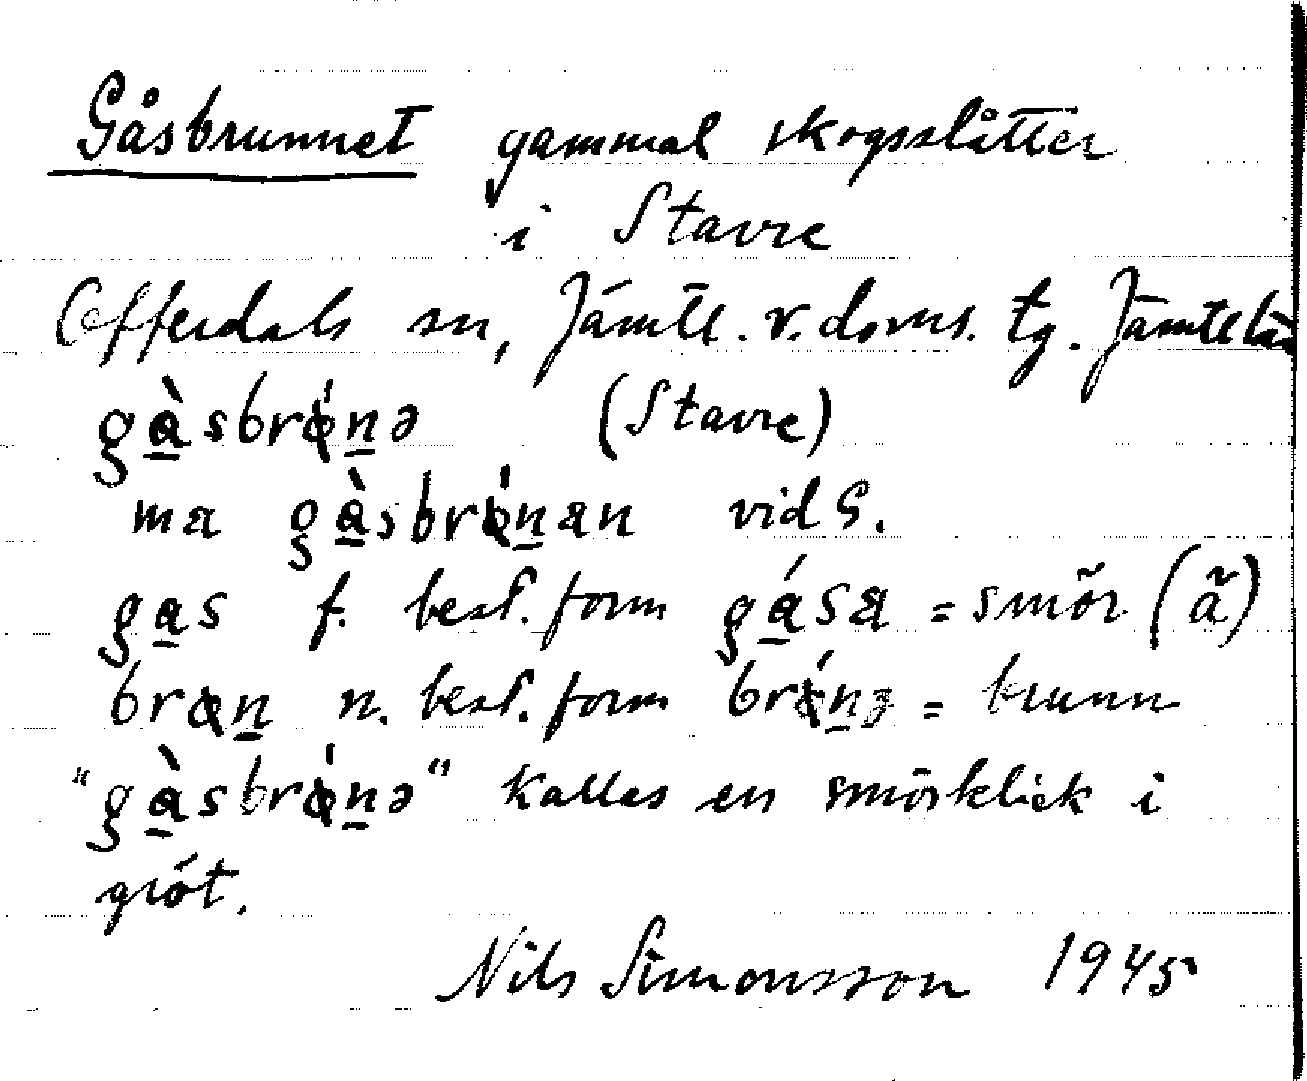 Gåsbrunnet gammal skogsslåtter
i Stavre
Offerdals sn, Jämtl. v. doms. tg. Jämtl län
gà̱sbrǿṉə (Stavre)
ma gà̱sbrǿṉan vid G.
ga̱s f. best. form gá̱sa = smör (ã)
brøṉ n. best. form brǿṉə = brunn
"gà̱sbrǿṉə" kallas en smörklick i
gröt.
Nils Simonsson 1945